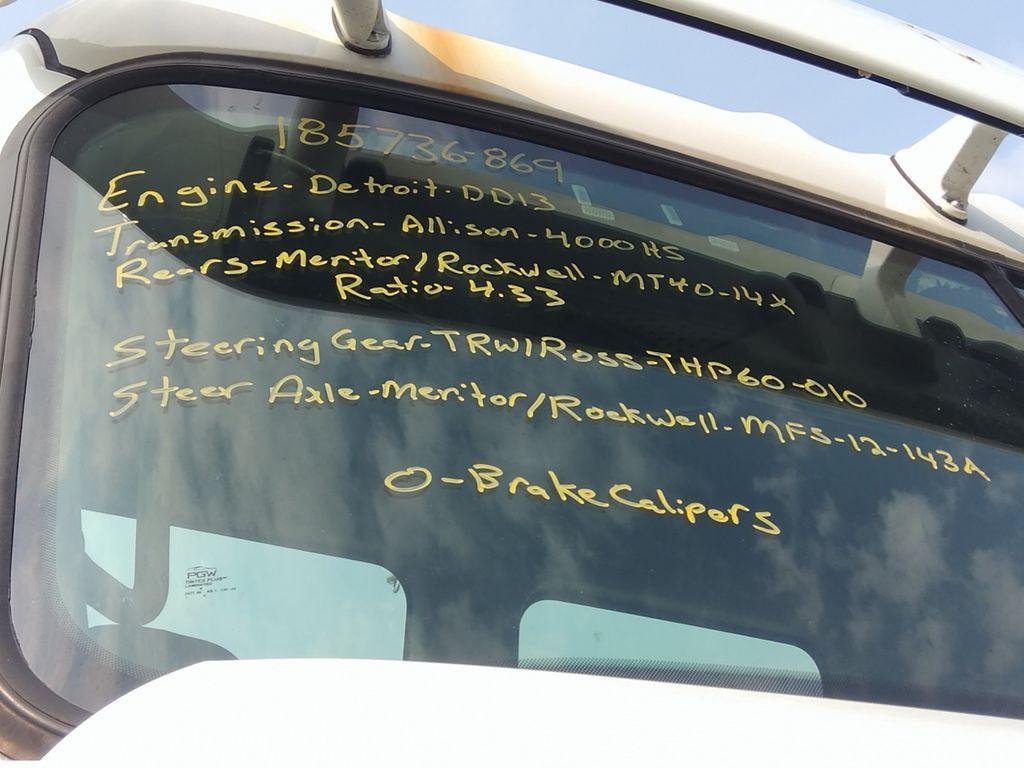 185736-869
Engine-Detroit-DD13
Transmission-Allison-4000HS
Rears-Meritor/Rockwell-MT40-14X
Ratio-4.33
Steering Gear-TRW/Ross-THP60-010
Steer Axle-Meritor/Rockwell-MFS-12-143A
0-Brake Calipers
PGW
LAMINATED